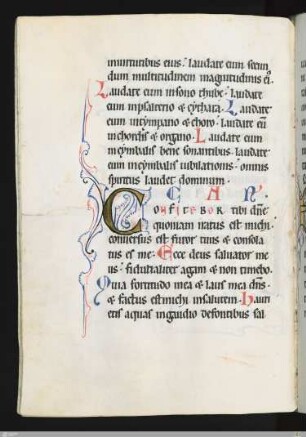 inuirtutibus eius. laudate eum secun
dum multitudinem magnitudinis ei⁹.
Laudate eum insono thube. laudate
eum inpsalterio & cythara. Laudate
eum intympano & choro. laudate eū
inchordis & organo. Laudate eum
incymbalis bene sonantibus. laudate
eum incymbalis iubilationis. omnis
spiritus laudet dominum. CAN'
Confitebor tibi dn̄e
quoniam iratus est michi.
conuersus est furor tuus & consola
tus es me. Ecce deus saluator me
us. fiducialiter agam & non timebo.
Quia fortitudo mea & laus mea dn̄s.
& factus est michi insalutem. Hauri
etis aquas ingaudio defontibus sal